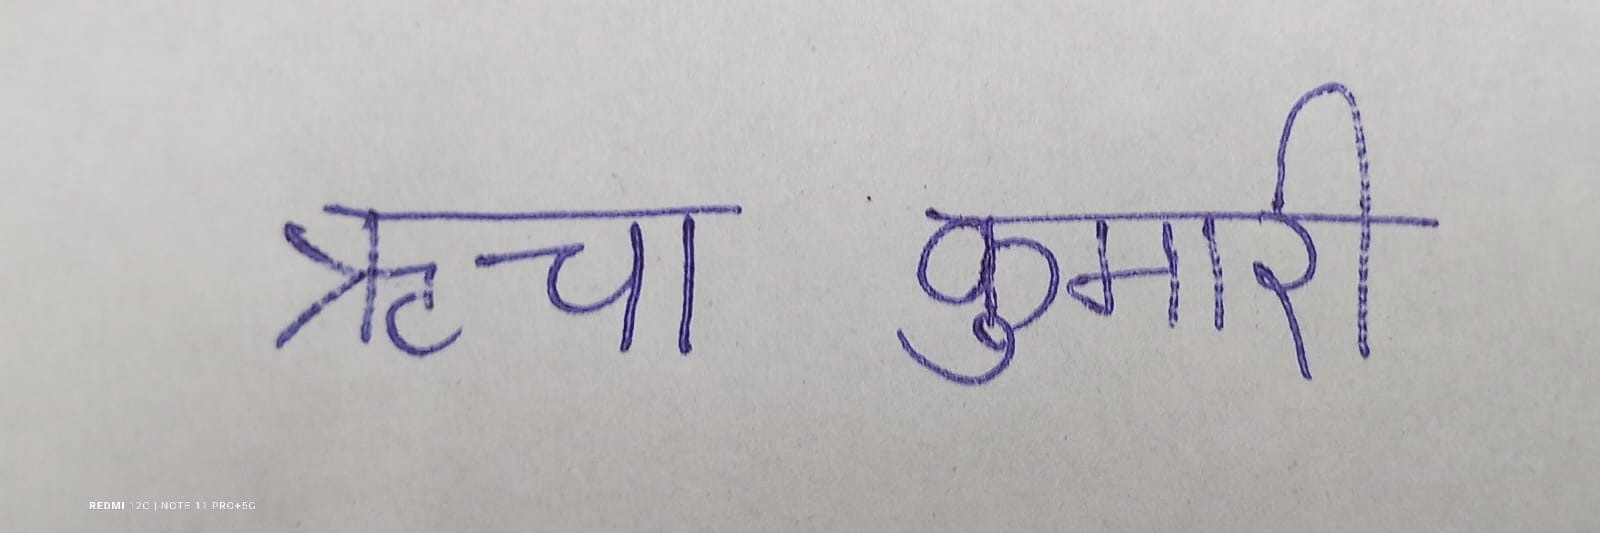 ऋचा कुमारी
REDMI 12C | NOTE 11 PRO+5G